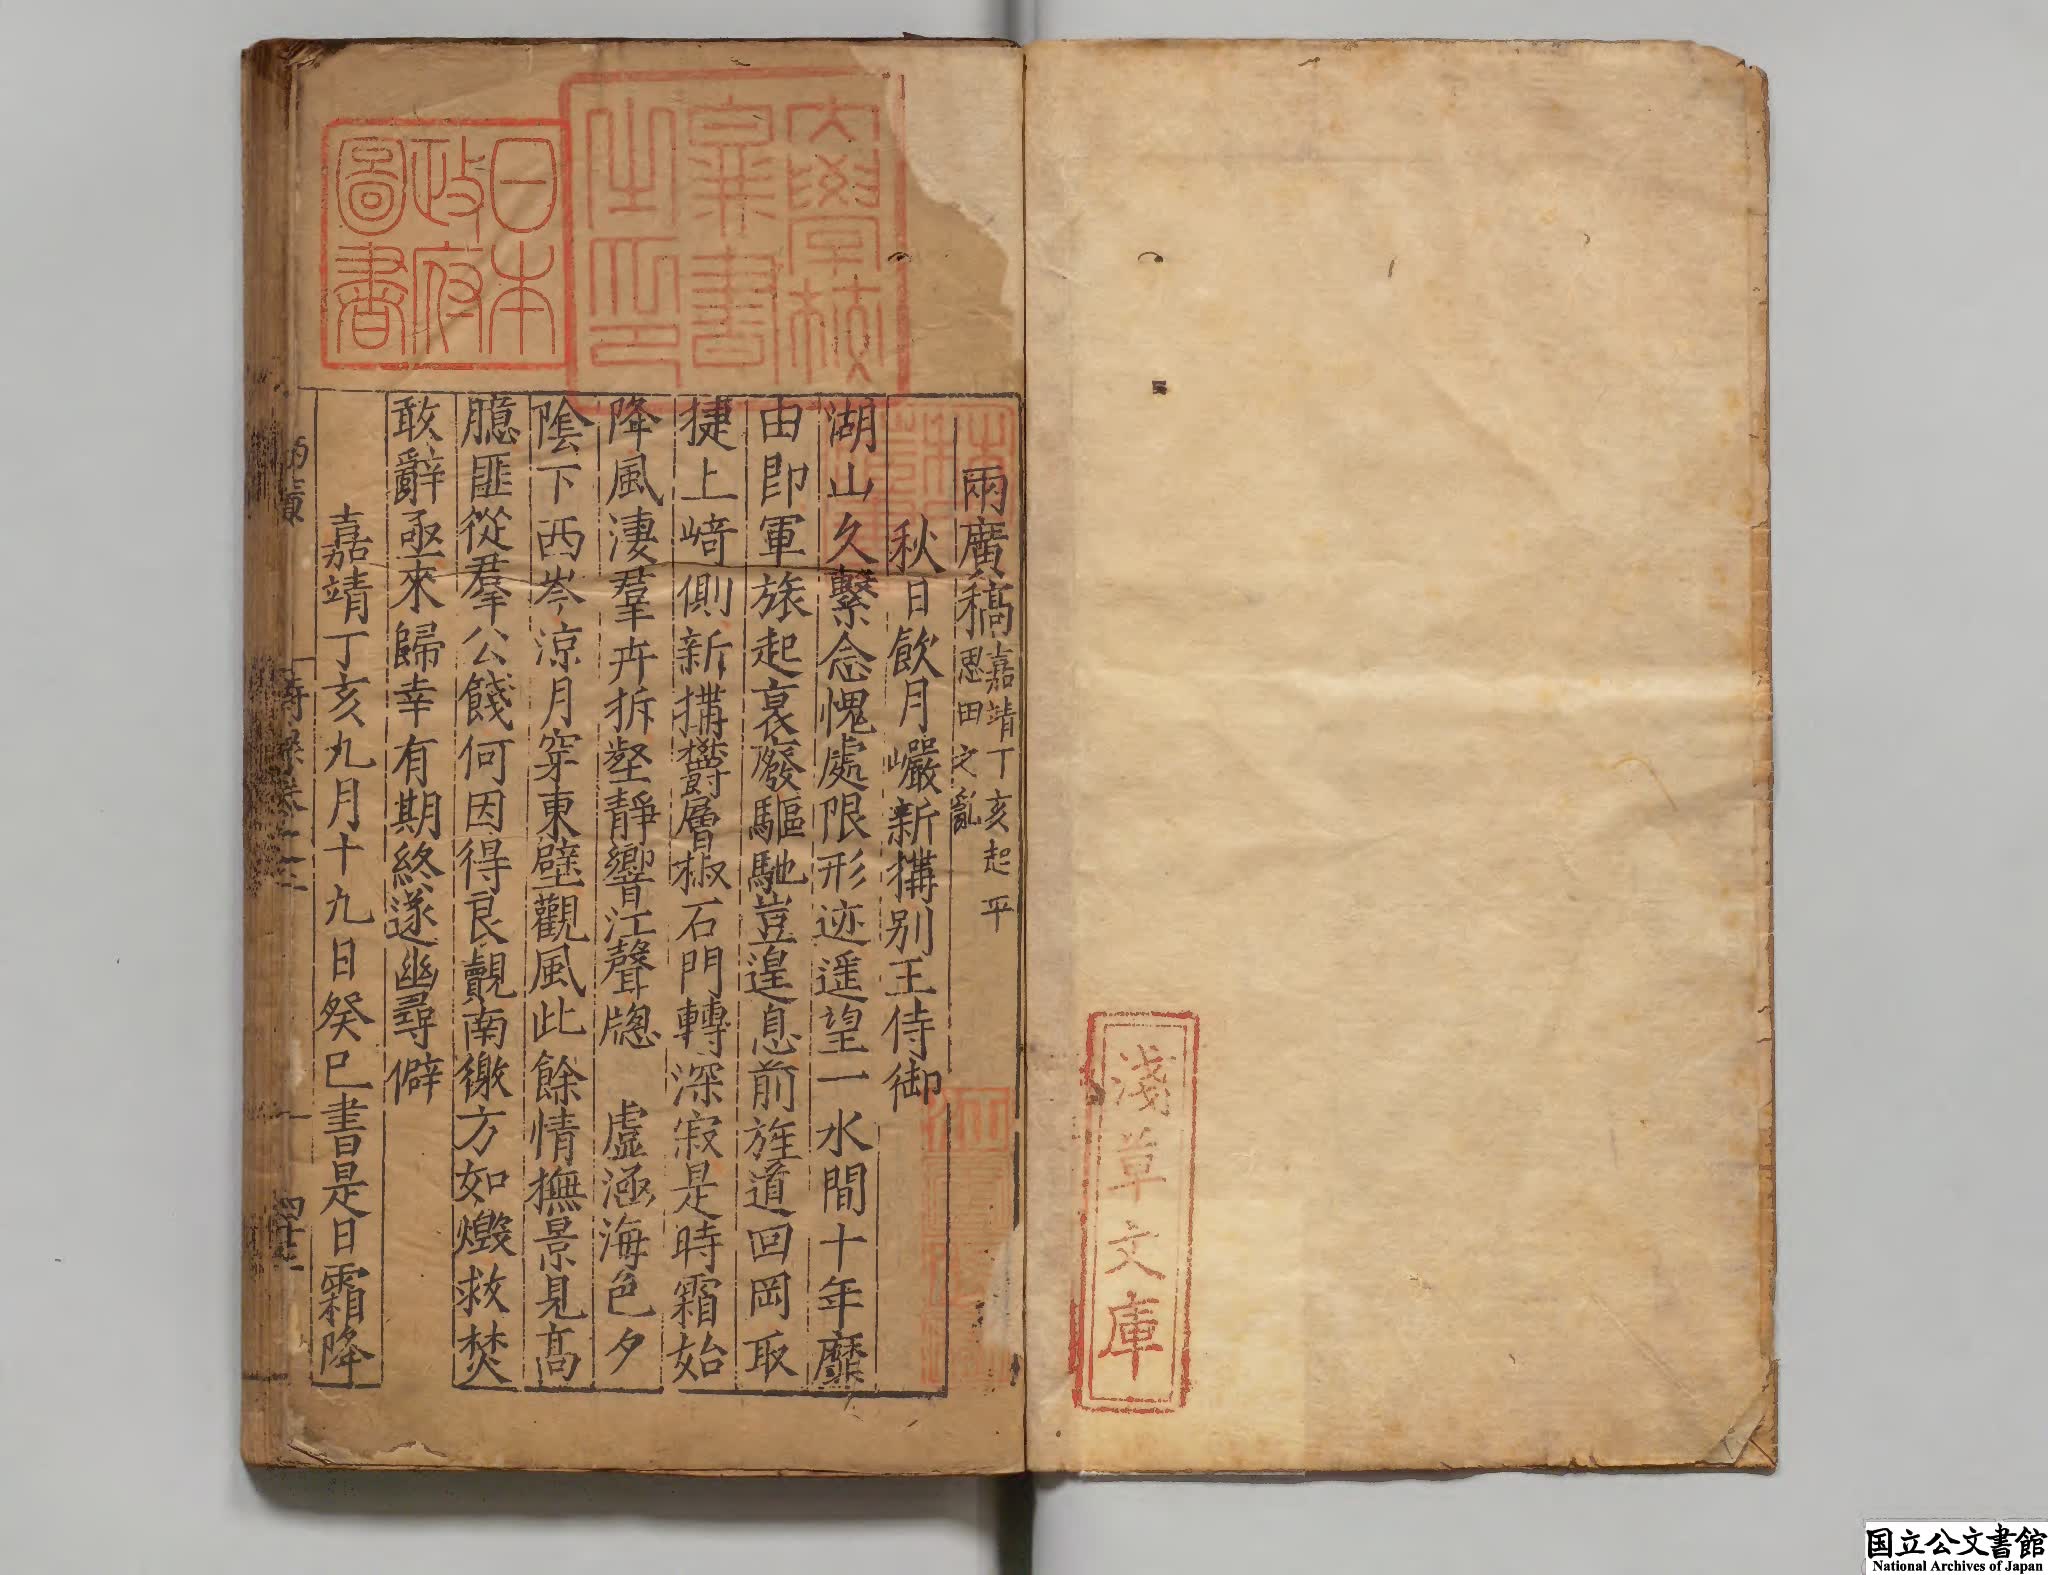 淺草文庫
兩廣稿嘉靖丁亥起平
思田之亂
秋日飲月巖新搆别王侍御
湖山久繫念愧處限形迹遥望一水間十年靡
由即軍旅起衰廢驅馳豈遑息前旌道回岡取
捷上崎側新搆鬱層椒石門轉深寂是時霜始
降風淒羣卉拆壑靜響江聲牕　虛涵海色夕
陰下西岑涼月穿東壁觀風此餘情撫景見高
臆匪從羣公餞何因得良覿南徼方如燬救焚
敢辭亟來歸幸有期終遂幽尋僻
嘉靖丁亥九月十九日癸巳書是日霜降
大學校
兼書
之印
日本
政府
圖書
国立公文書館
National Archives of Japan